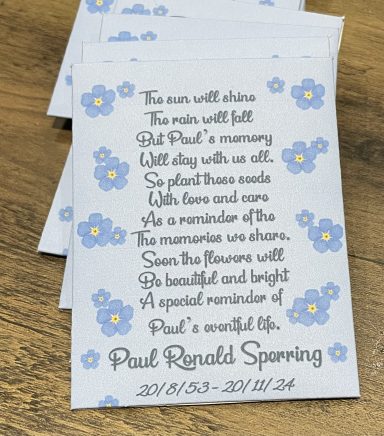 The sun will shine
The rain will fall
But Paul's memory
Will stay with us all.
So plant these seeds
With love and care
As a reminder of the
The memories we share.
Soon the flowers will
Be beautiful and bright
A special reminder of
Paul's eventful life.
Paul Ronald Sperring
20/8/53-20/11/24